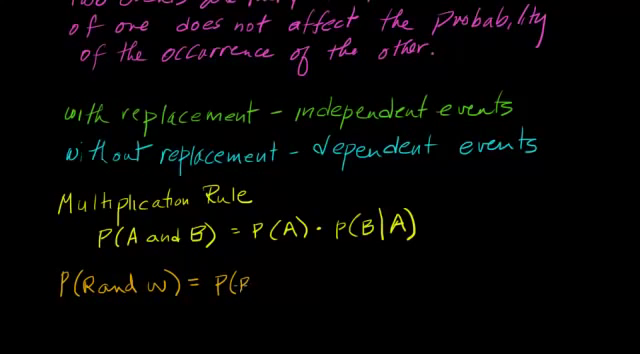 of one does not affect the probability
of the occurrence of the other.
with replacement - independent events
without replacement - dependent events
Multiplication Rule
P(A and B) = P(A) · P(B|A)
P(R and W) = P(R